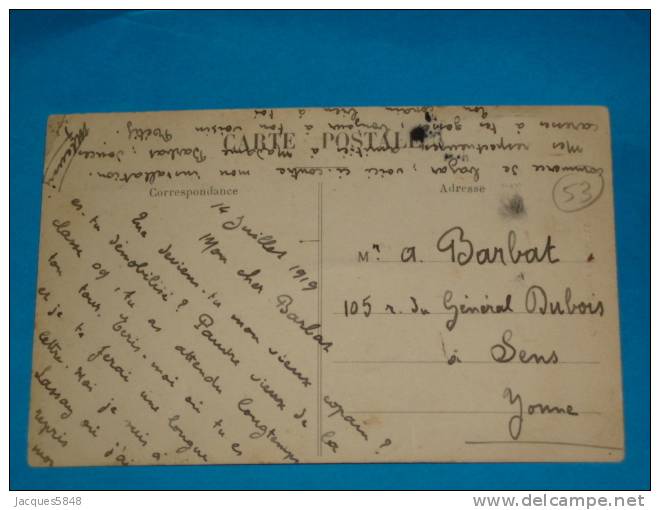 CARTE POSTALE
Correspondance
Adresse
53
14 Juillet 1919
Mon cher Barbat
Que deviens-tu mon vieux copain ?
es-tu démobilisé ? Pauvre vieux de la
classe 09, tu as attendu longtemps
ton tour. Ecris-moi où tu es
et je te ferai une longue
lettre. Moi je suis à
Lassay où j'ai
repris
mon
commerce de bazar ; voici ci-contre mon installation.
Mes respectueuses amitiés à madame Barbat ; douces
caresses à ta gosse ; bonjour à ton voisin
bien à toi
Mr A. Barbat
105 r. du Général Dubois
à Sens
Yonne
Jacques5848
www.delcampe.net